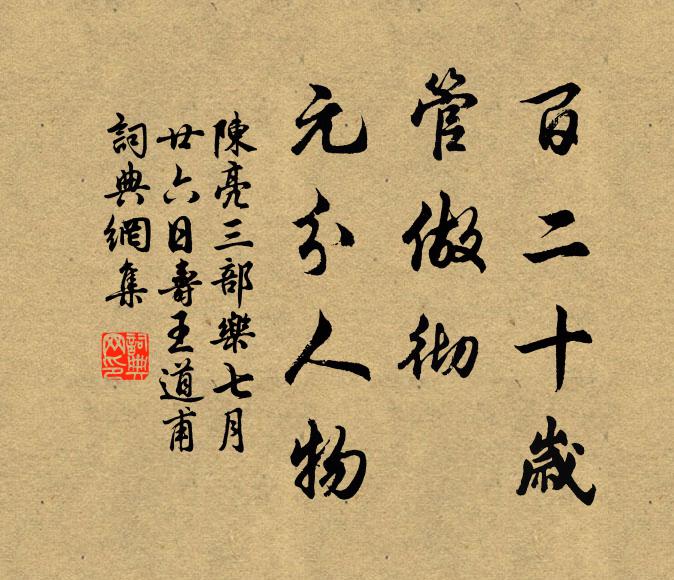 百二十歲
管做彻
元分人物
陳亮三部樂七月
廿六日壽王道甫
詞典網集
詞典
网印